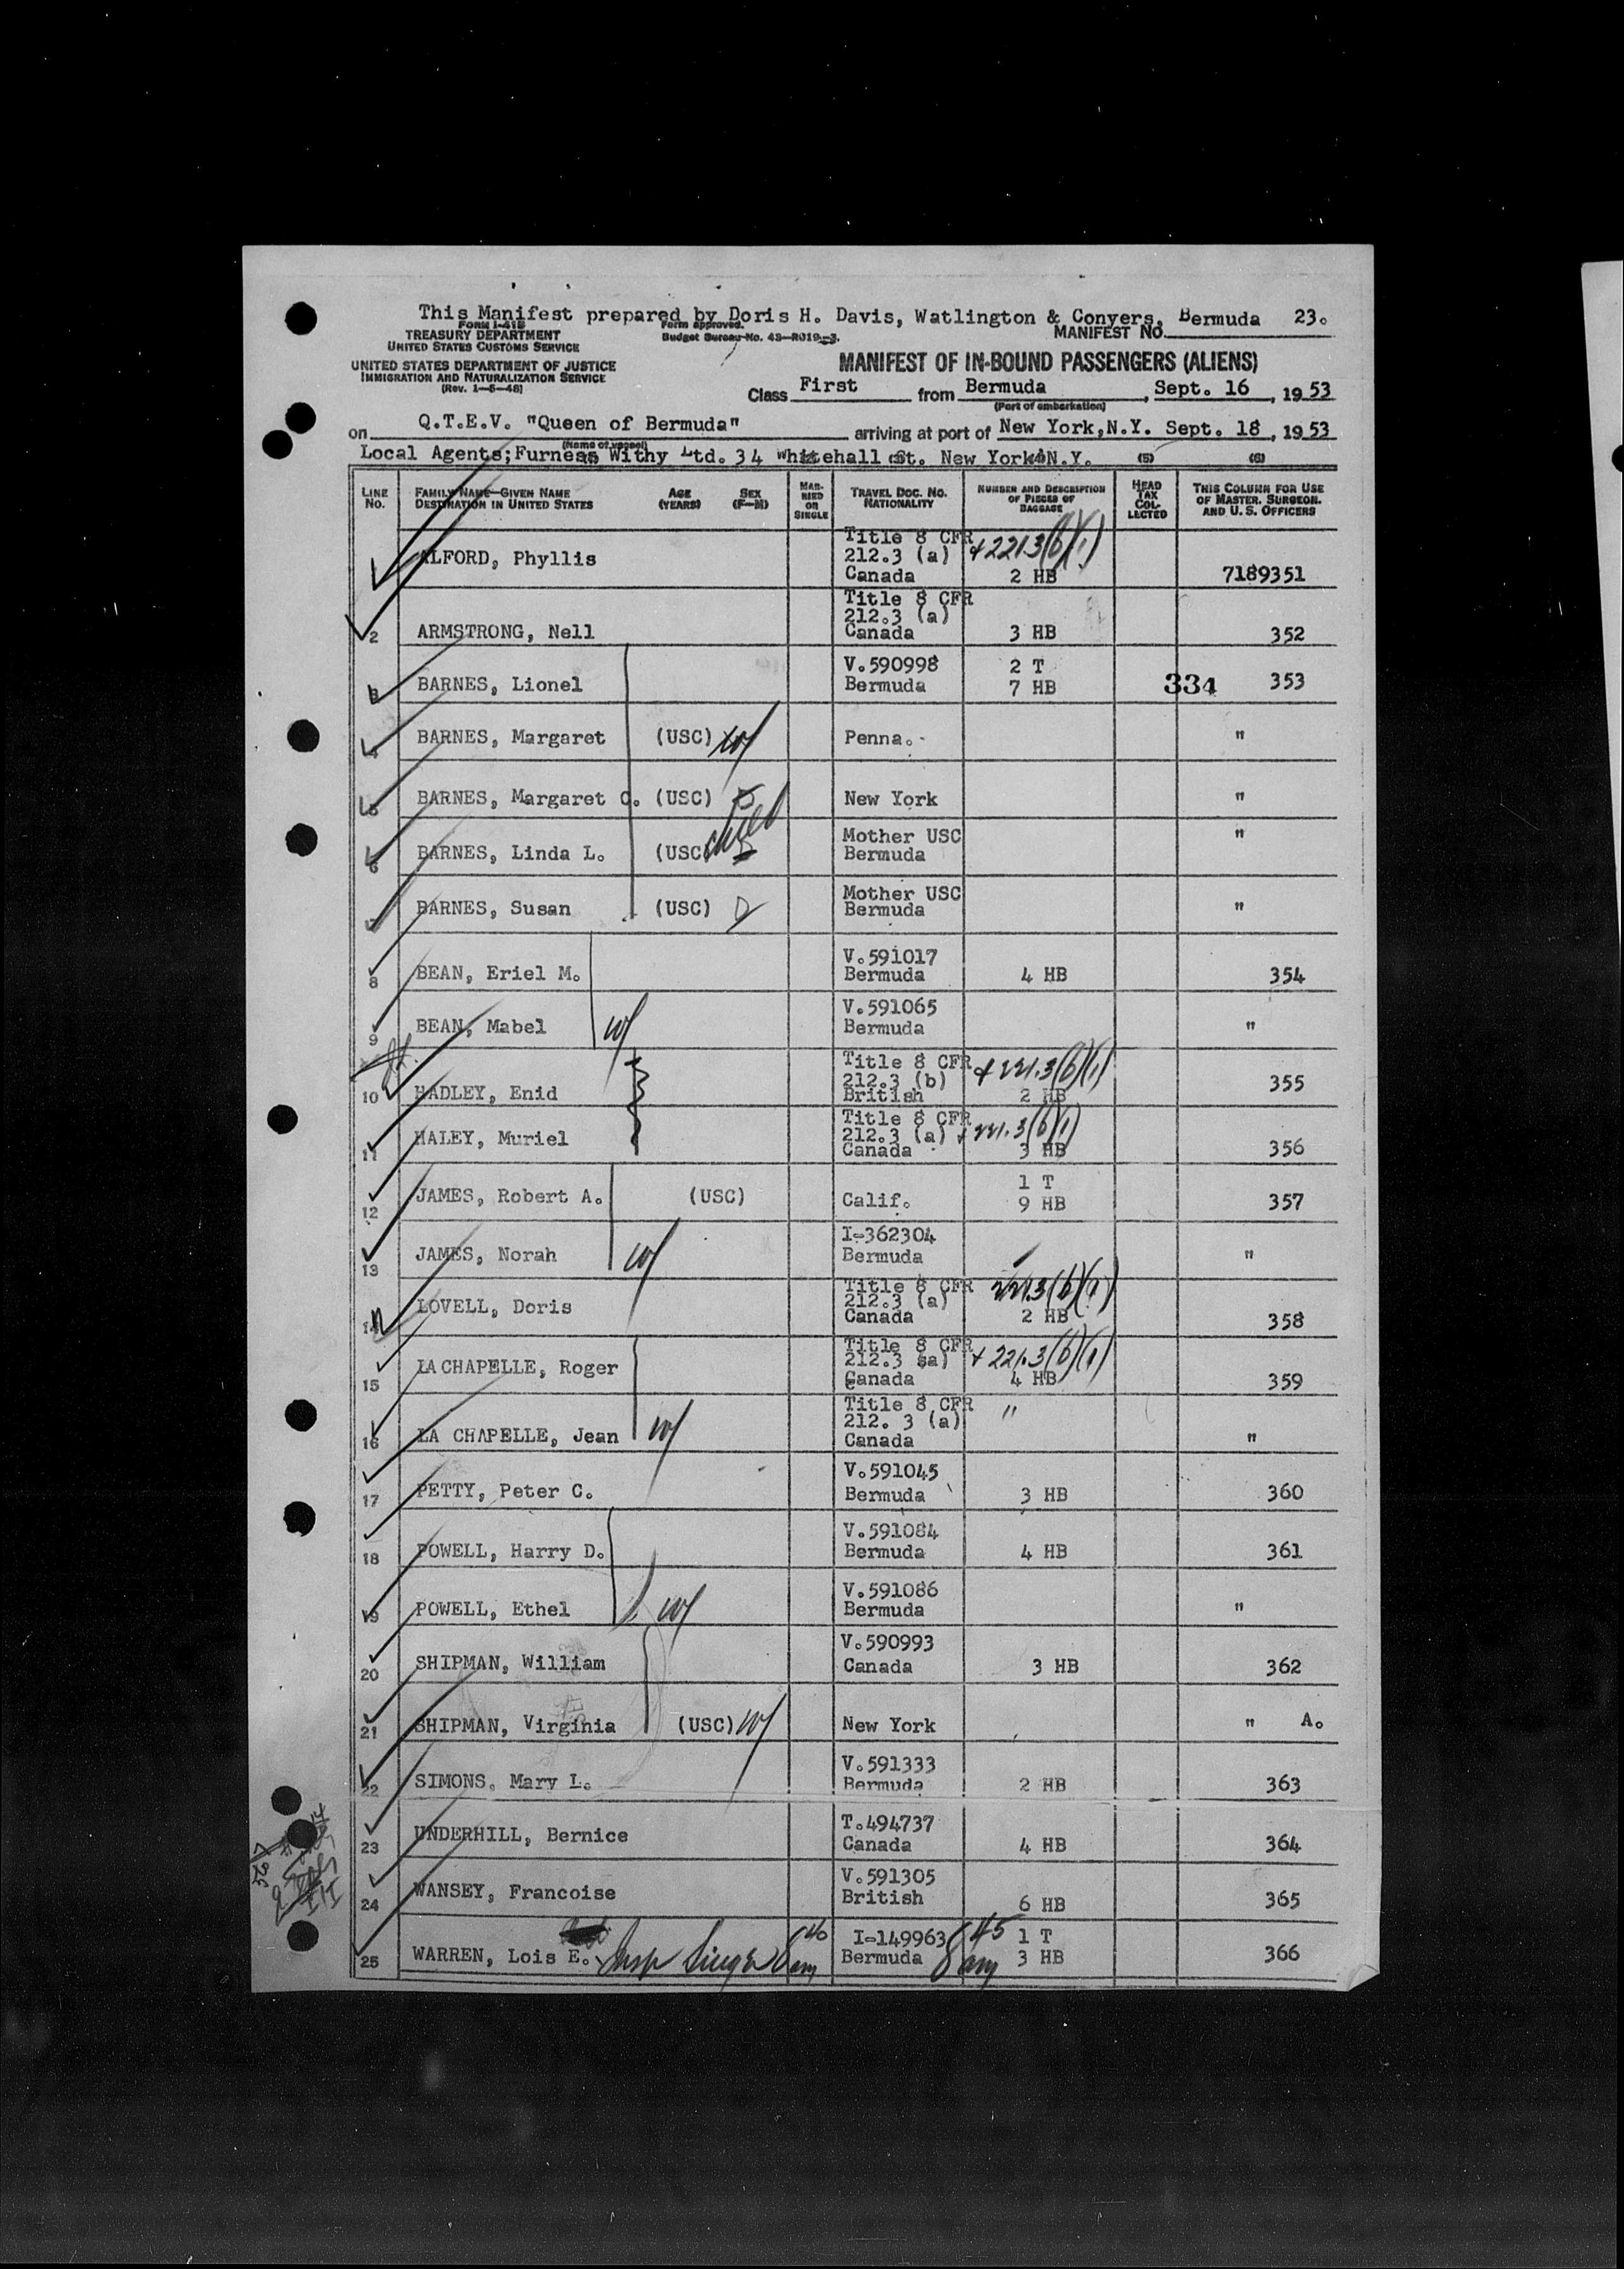 This Manifest prepared by Doris H. Davis, Watlington & Conyers, Bermuda 23.
Form I-418
TREASURY DEPARTMENT
UNITED STATES CUSTOMS SERVICE
Form approved.
Budget Bureau No. 43-R019.-3.
MANIFEST NO.
UNITED STATES DEPARTMENT OF JUSTICE
IMMIGRATION AND NATURALIZATION SERVICE
(Rev. 1-5-48)
MANIFEST OF IN-BOUND PASSENGERS (ALIENS)
Class First from Bermuda, Sept. 16, 1953
(Port of embarkation)
on Q.T.E.V. "Queen of Bermuda" arriving at port of New York, N.Y. Sept. 18, 1953
(Name of vessel)
Local Agents; Furness Withy Ltd. 34 Whitehall St. New York N.Y. (5) (6)
LINE No. FAMILY NAME—GIVEN NAME DESTINATION IN UNITED STATES AGE (YEARS) SEX (F—M) MARRIED OR SINGLE TRAVEL DOC. NO. NATIONALITY NUMBER AND DESCRIPTION OF PIECES OF BAGGAGE HEAD TAX COLLECTED THIS COLUMN FOR USE OF MASTER, SURGEON, AND U. S. OFFICERS
ALFORD, Phyllis Title 8 CFR 212.3 (a) Canada + 221.3(b)(1) 2 HB 7189351
2 ARMSTRONG, Nell Title 8 CFR 212.3 (a) Canada 3 HB 352
3 BARNES, Lionel V.590998 Bermuda 2 T 7 HB 334 353
4 BARNES, Margaret (USC) W Penna. "
5 BARNES, Margaret C. (USC) D New York "
6 BARNES, Linda L. (USC) child D Mother USC Bermuda "
7 BARNES, Susan (USC) D Mother USC Bermuda "
8 BEAN, Eriel M. V.591017 Bermuda 4 HB 354
9 BEAN, Mabel W V.591065 Bermuda "
10 HADLEY, Enid Title 8 CFR 212.3 (b) British + 221.3(b)(1) 2 HB 355
11 HALEY, Muriel Title 8 CFR 212.3 (a) Canada + 221.3(b)(1) 3 HB 356
12 JAMES, Robert A. (USC) Calif. 1 T 9 HB 357
13 JAMES, Norah W I-362304 Bermuda "
14 LOVELL, Doris Title 8 CFR 212.3 (a) Canada 221.3(b)(1) 2 HB 358
15 LA CHAPELLE, Roger Title 8 CFR 212.3 (a) Canada + 221.3(b)(1) 4 HB 359
16 LA CHAPELLE, Jean W Title 8 CFR 212. 3 (a) Canada " "
17 PETTY, Peter C. V.591045 Bermuda 3 HB 360
18 POWELL, Harry D. V.591084 Bermuda 4 HB 361
19 POWELL, Ethel W V.591086 Bermuda "
20 SHIPMAN, William V.590993 Canada 3 HB 362
21 SHIPMAN, Virginia (USC) W New York " A.
22 SIMONS, Mary L. V.591333 Bermuda 2 HB 363
23 UNDERHILL, Bernice T.494737 Canada 4 HB 364
24 WANSEY, Francoise V.591305 British 6 HB 365
25 WARREN, Lois E. Insp Singer 8 40 am I-149963 Bermuda 8 45 am 1 T 3 HB 366